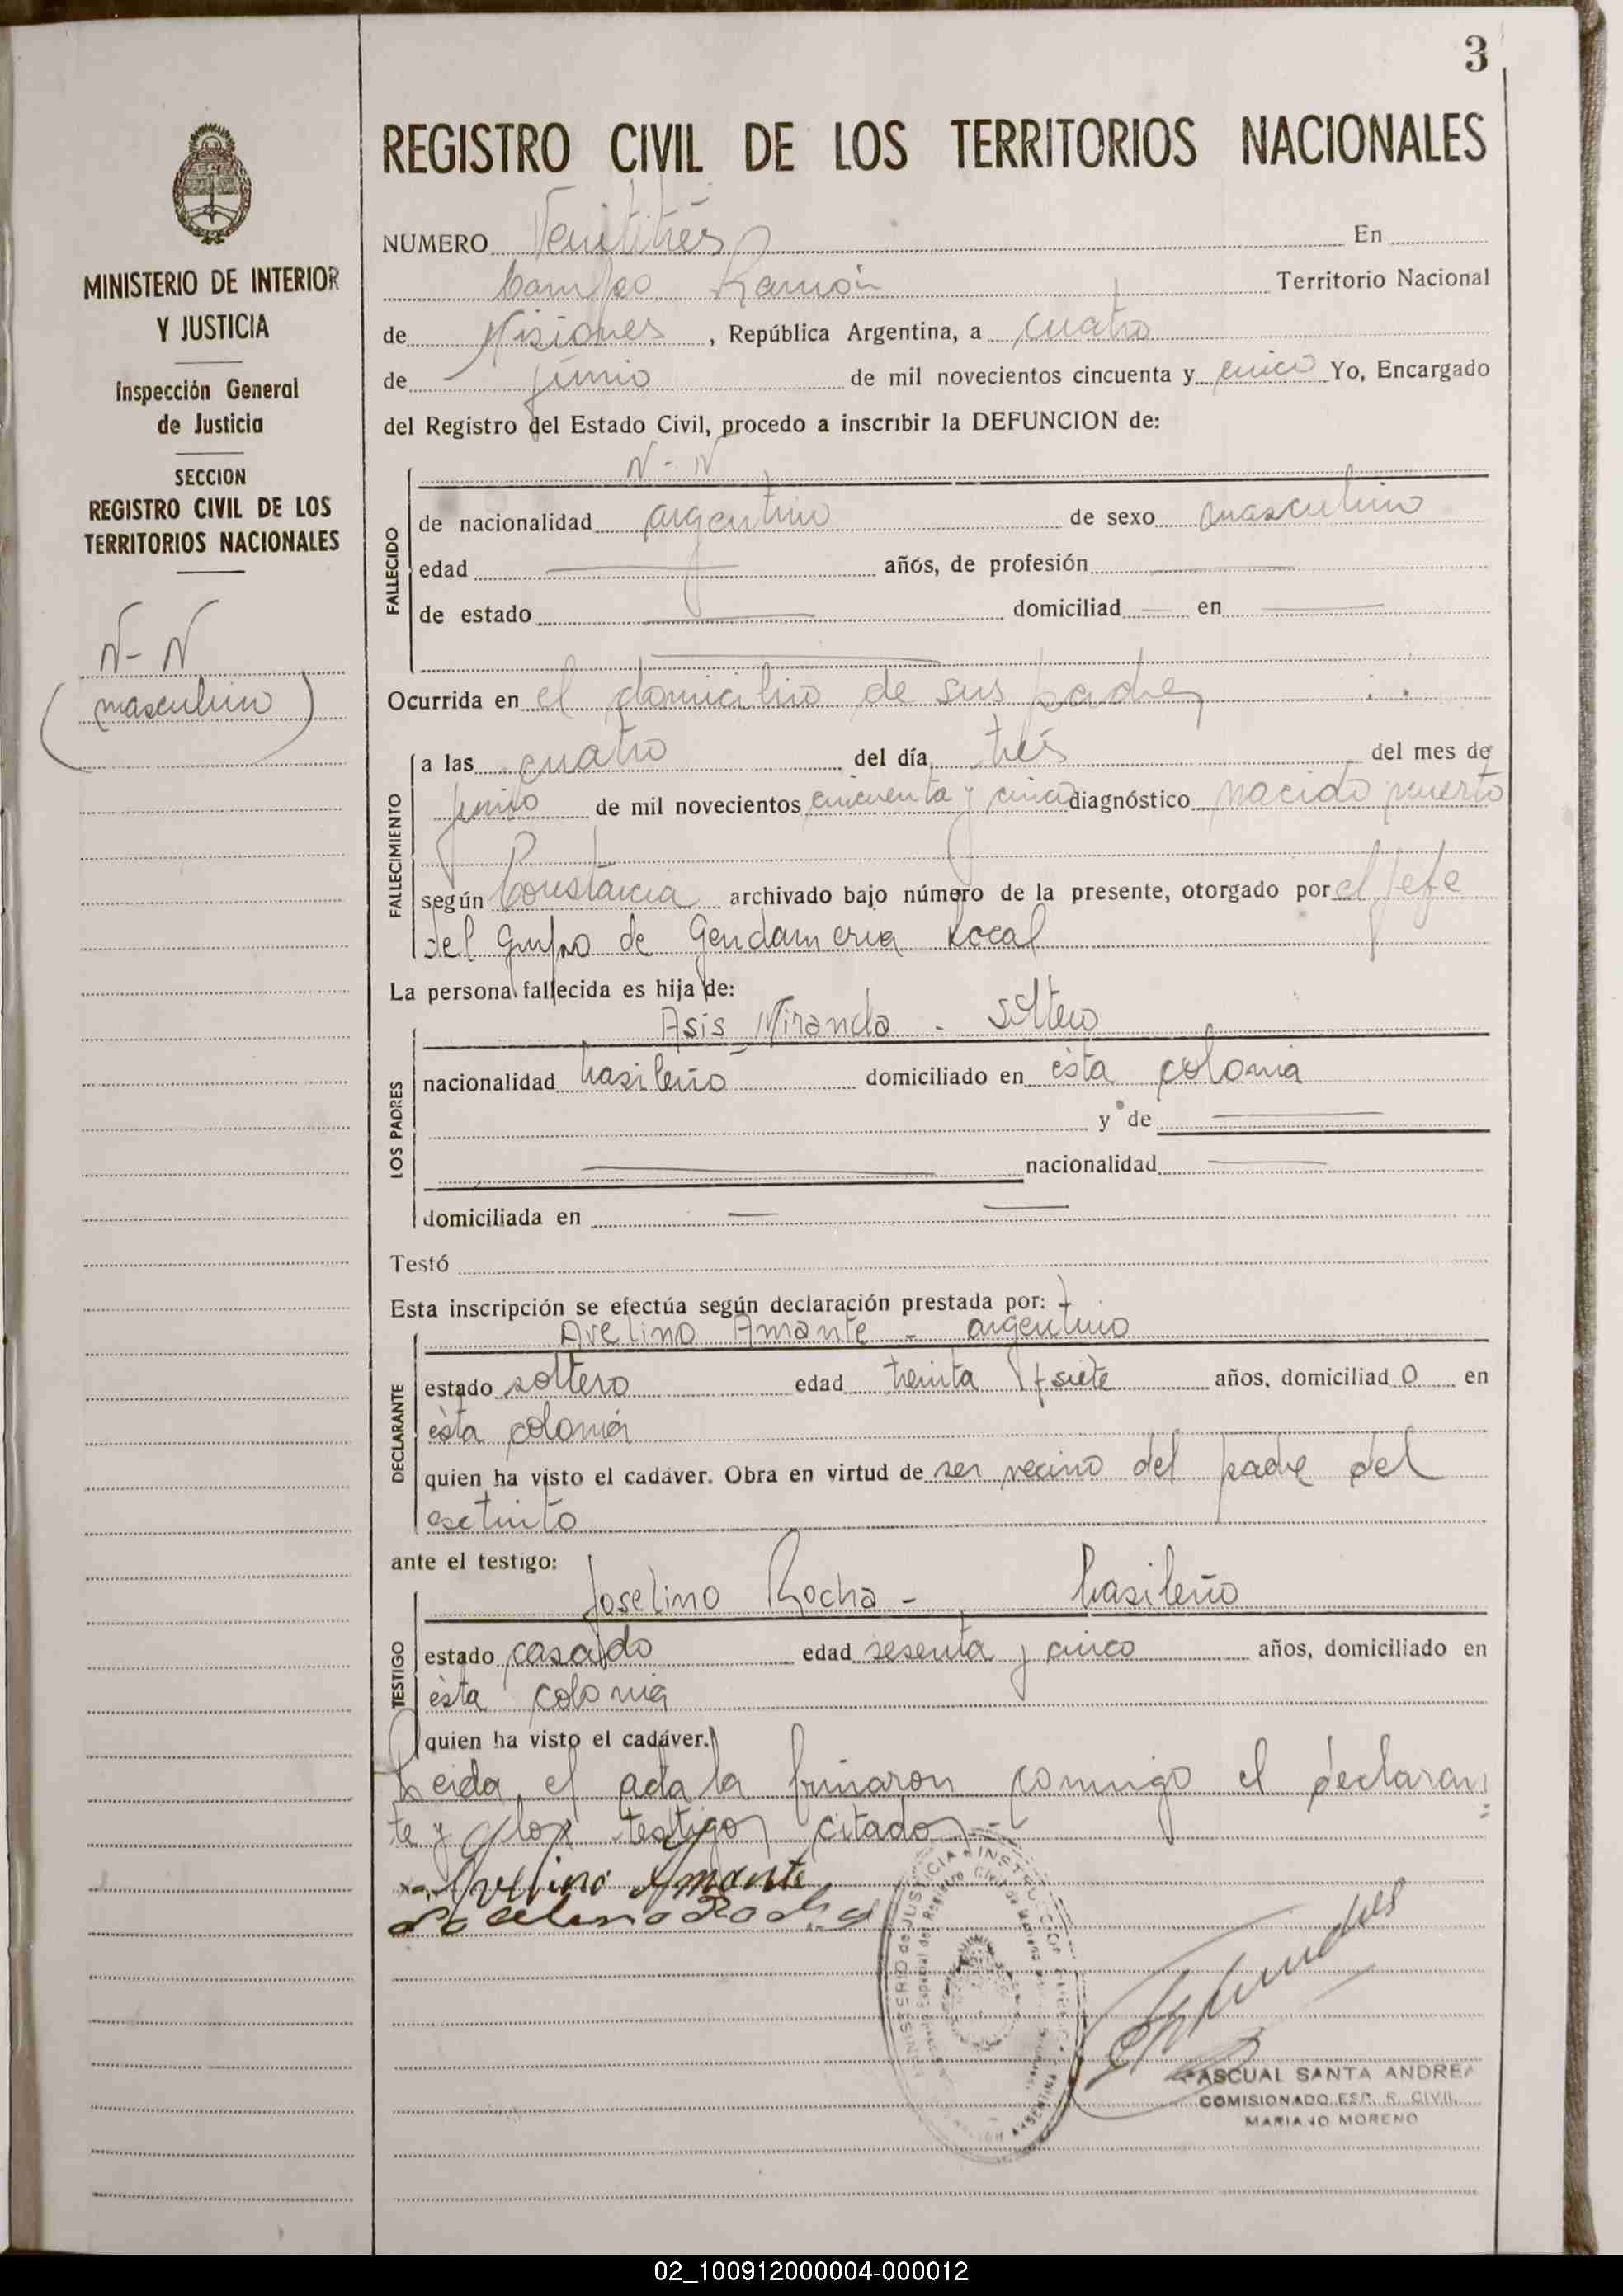 3
REGISTRO CIVIL DE LOS TERRITORIOS NACIONALES
MINISTERIO DE INTERIOR
Y JUSTICIA
Inspección General
de Justicia
SECCION
REGISTRO CIVIL DE LOS
TERRITORIOS NACIONALES
N-N
(masculino)
NUMERO Veintitrés En
Campo Ramón Territorio Nacional
de Misiones, República Argentina, a cuatro
de junio de mil novecientos cincuenta y cinco Yo, Encargado
del Registro del Estado Civil, procedo a inscribir la DEFUNCION de:
N-N
FALLECIDO
de nacionalidad argentino de sexo masculino
edad años, de profesión
de estado domiciliad en
Ocurrida en el domicilio de sus padres
FALLECIMIENTO
a las cuatro del día tres del mes de
junio de mil novecientos cincuenta y cinco diagnóstico nacido muerto
según Constancia archivado bajo número de la presente, otorgado por el Jefe
del grupo de Gendameria Local
La persona fallecida es hija de:
LOS PADRES
Asis Miranda - soltero
nacionalidad brasileño domiciliado en ésta colonia
y de
nacionalidad
domiciliada en
Testó
Esta inscripción se efectúa según declaración prestada por:
DECLARANTE
Avelino Amante - argentino
estado soltero edad treinta y siete años, domiciliad o en
ésta colonia
quien ha visto el cadáver. Obra en virtud de ser vecino del padre del
extinto
ante el testigo:
TESTIGO
Joselino Rocha - brasileño
estado casado edad sesenta y cinco años, domiciliado en
ésta colonia
quien ha visto el cadáver.
Leida el acta la firmaron conmigo el declaran
te y los testigos citados.-
Avelino Amante
PASCUAL SANTA ANDREA
COMISIONADO ESP. R. CIVIL
MARIANO MORENO
02_100912000004-000012